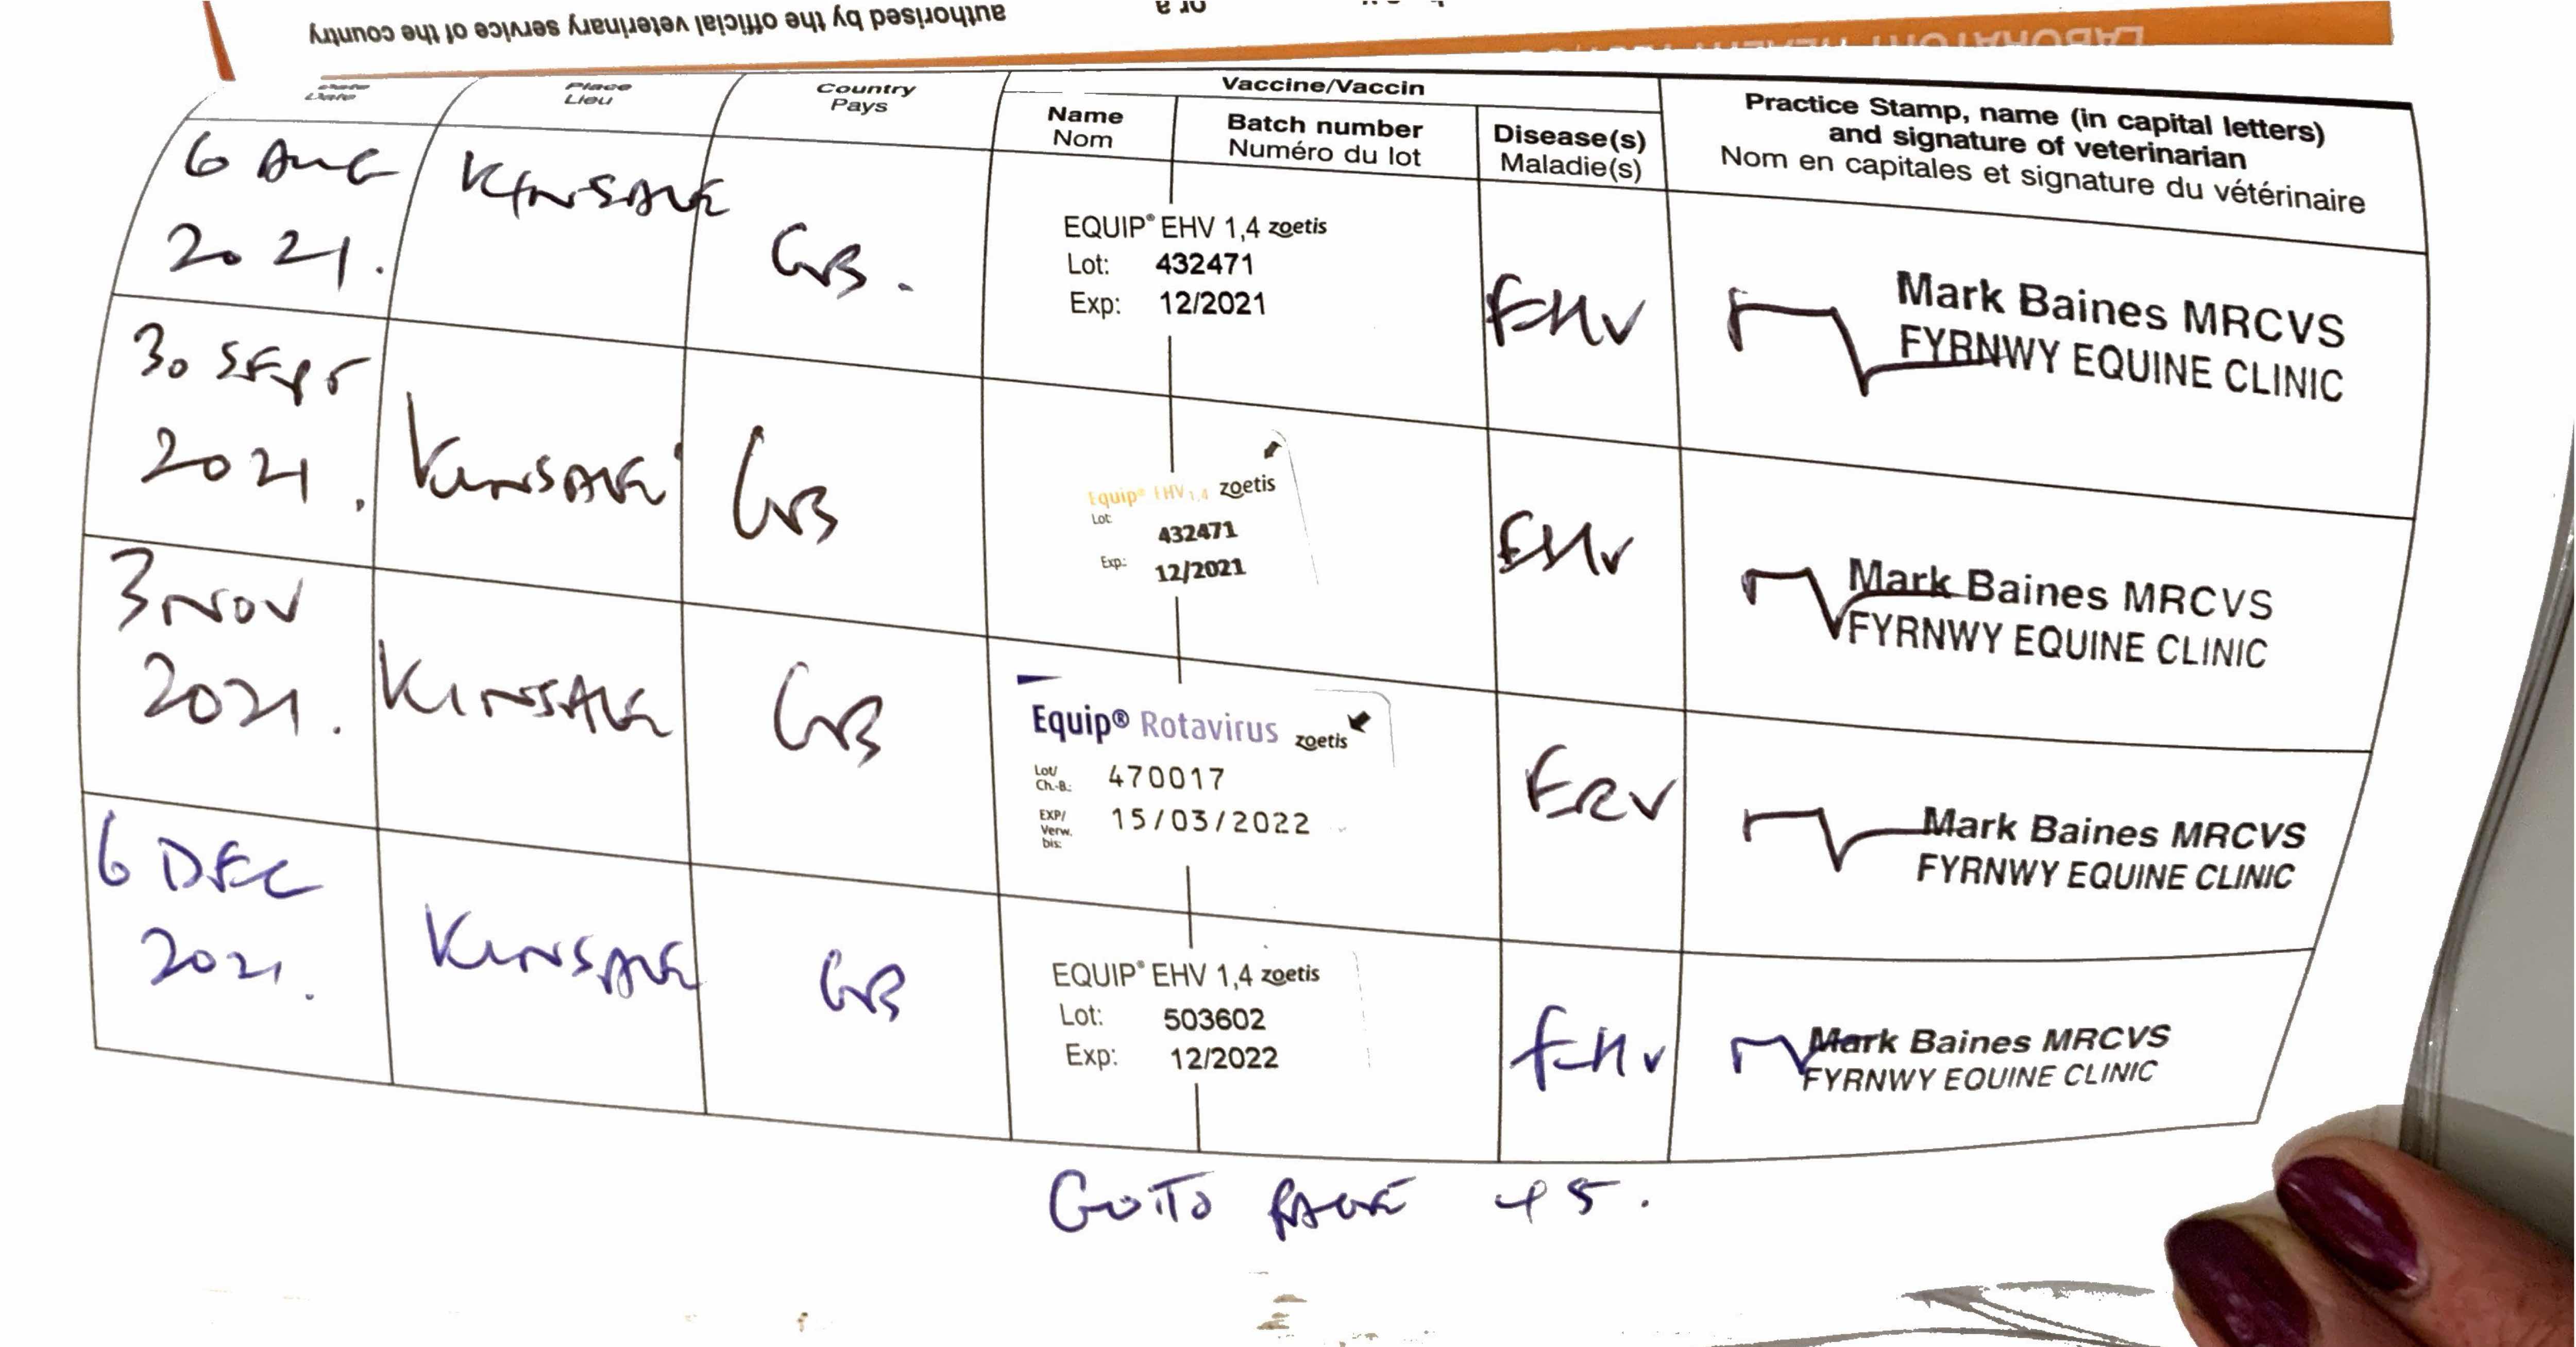 authorised by the official veterinary service of the country
or a
LABORATORY HEALTH
Date Place Country Vaccine/Vaccin Practice Stamp, name (in capital letters)
Date Lieu Pays and signature of veterinarian
Name Batch number Disease(s) Nom en capitales et signature du vétérinaire
Nom Numéro du lot Maladie(s)
6 AUG KINSALE GB. EQUIP® EHV 1,4 zoetis EHV Mark Baines MRCVS
2021. Lot: 432471 FYRNWY EQUINE CLINIC
Exp: 12/2021
30 SEPT KINSALE GB Equip® EHV 1,4 zoetis EHV Mark Baines MRCVS
2021. Lot: 432471 FYRNWY EQUINE CLINIC
Exp: 12/2021
3 NOV KINSALE GB Equip® Rotavirus zoetis ERV Mark Baines MRCVS
2021. Lot/ Ch.-B.: 470017 FYRNWY EQUINE CLINIC
EXP/ Verw. bis: 15/03/2022
6 DEC KINSALE GB EQUIP® EHV 1,4 zoetis EHV Mark Baines MRCVS
2021. Lot: 503602 FYRNWY EQUINE CLINIC
Exp: 12/2022
GOTO PAGE 45.